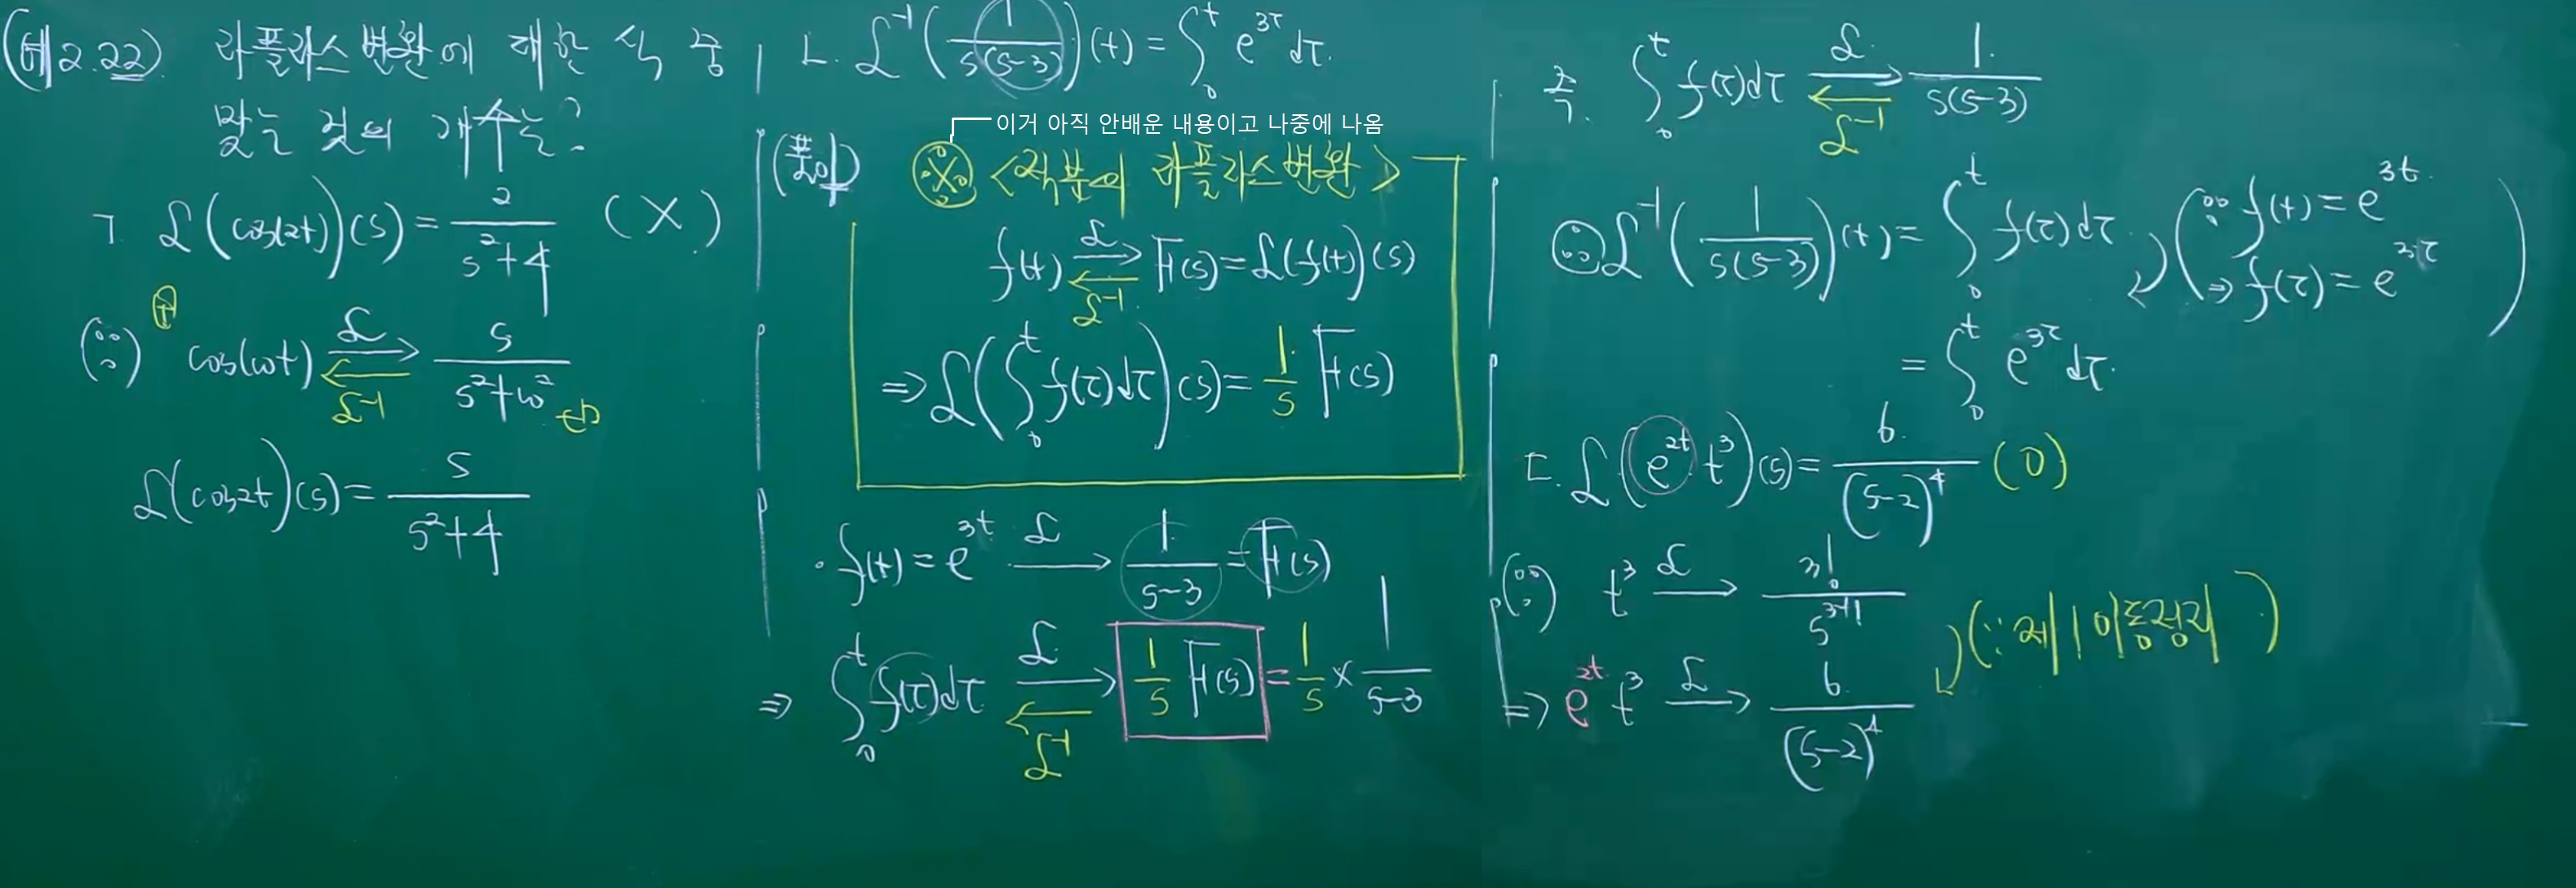 (예 2.22) 라플라스변환에 대한 식 중
맞는 것의 개수는?
ㄱ. ℒ(cos(2t))(s) = 2/(s²+4) (X)
(∵) ⊕ cos(ωt) ⇄ s/(s²+ω²)
ℒ
ℒ⁻¹
ℒ(cos2t)(s) = s/(s²+4)
ㄴ. ℒ⁻¹(1/(s(s-3)))(t) = ∫₀ᵗ e^{3τ} dτ.
이거 아직 안배운 내용이고 나중에 나옴
(풀이) ※ <적분의 라플라스변환>
f(t) ⇄ F(s) = ℒ(f(t))(s)
ℒ
ℒ⁻¹
⇒ ℒ(∫₀ᵗ f(τ)dτ)(s) = 1/s F(s)
· f(t) = e^{3t} →ℒ 1/(s-3) = F(s)
⇒ ∫₀ᵗ f(τ)dτ ⇄ 1/s F(s) = 1/s × 1/(s-3)
ℒ
ℒ⁻¹
즉. ∫₀ᵗ f(τ)dτ ⇄ 1/(s(s-3))
ℒ
ℒ⁻¹
∴ ℒ⁻¹(1/(s(s-3)))(t) = ∫₀ᵗ f(τ)dτ (∵ f(t) = e^{3t}
⇒ f(τ) = e^{3τ})
= ∫₀ᵗ e^{3τ} dτ.
ㄷ. ℒ(e^{2t} t³)(s) = 6/(s-2)⁴ (O)
(∵) t³ →ℒ 3!/s^{3+1}
(∵ 제1이동정리)
⇒ e^{2t} t³ →ℒ 6/(s-2)⁴